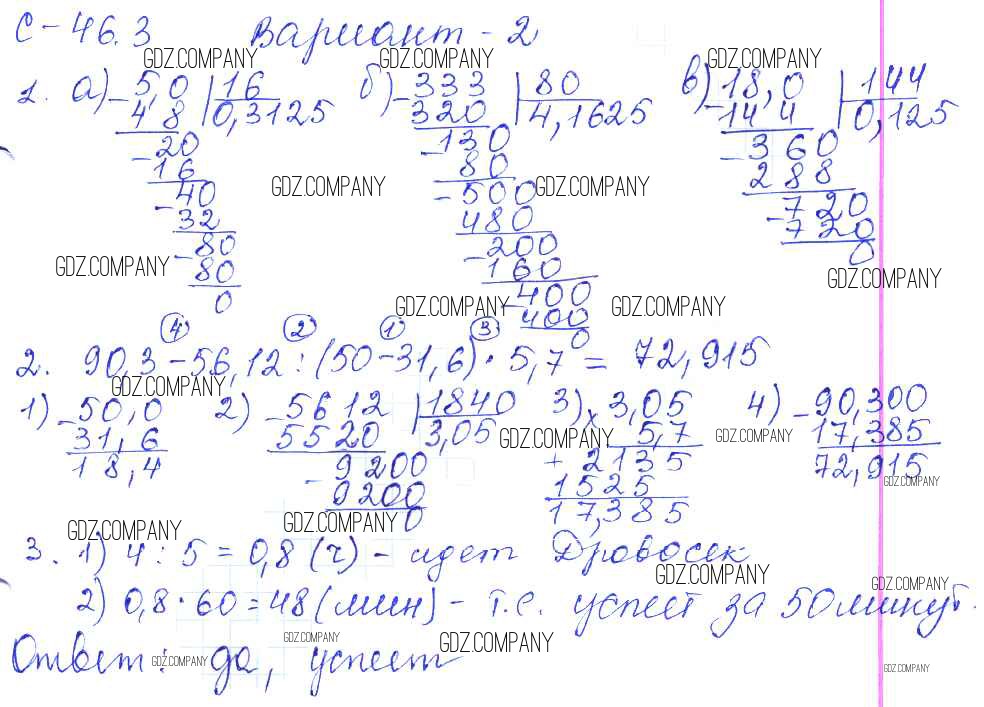 С-46.3 Вариант-2
GDZ.COMPANY GDZ.COMPANY GDZ.COMPANY
1. а) -5,0 | 16 б) -333 | 80 в) -18,0 | 144
4,8 0,3125 320 4,1625 144 0,125
-20 -130 -360
16 80 288
-40 GDZ.COMPANY -500 GDZ.COMPANY -720
-32 480 720
-80 -200 0
GDZ.COMPANY 80 160 GDZ.COMPANY
0 GDZ.COMPANY -400 GDZ.COMPANY
400
0
4 2 1 3
2. 90,3-56,12:(50-31,6)·5,7=72,915
GDZ.COMPANY
1) -50,0 2) -5612 | 1840 3) x3,05 4) -90,300
31,6 5520 3,05 GDZ.COMPANY 5,7 GDZ.COMPANY 17,385
18,4 -9200 +2135 72,915
9200 1525 GDZ.COMPANY
GDZ.COMPANY GDZ.COMPANY 0 17,385
3. 1) 4:5=0,8(ч)- идет Дровосек
GDZ.COMPANY GDZ.COMPANY
2) 0,8·60=48(мин)- т.е. успеет за 50 минут.
GDZ.COMPANY GDZ.COMPANY
Ответ: да, успеет
GDZ.COMPANY GDZ.COMPANY